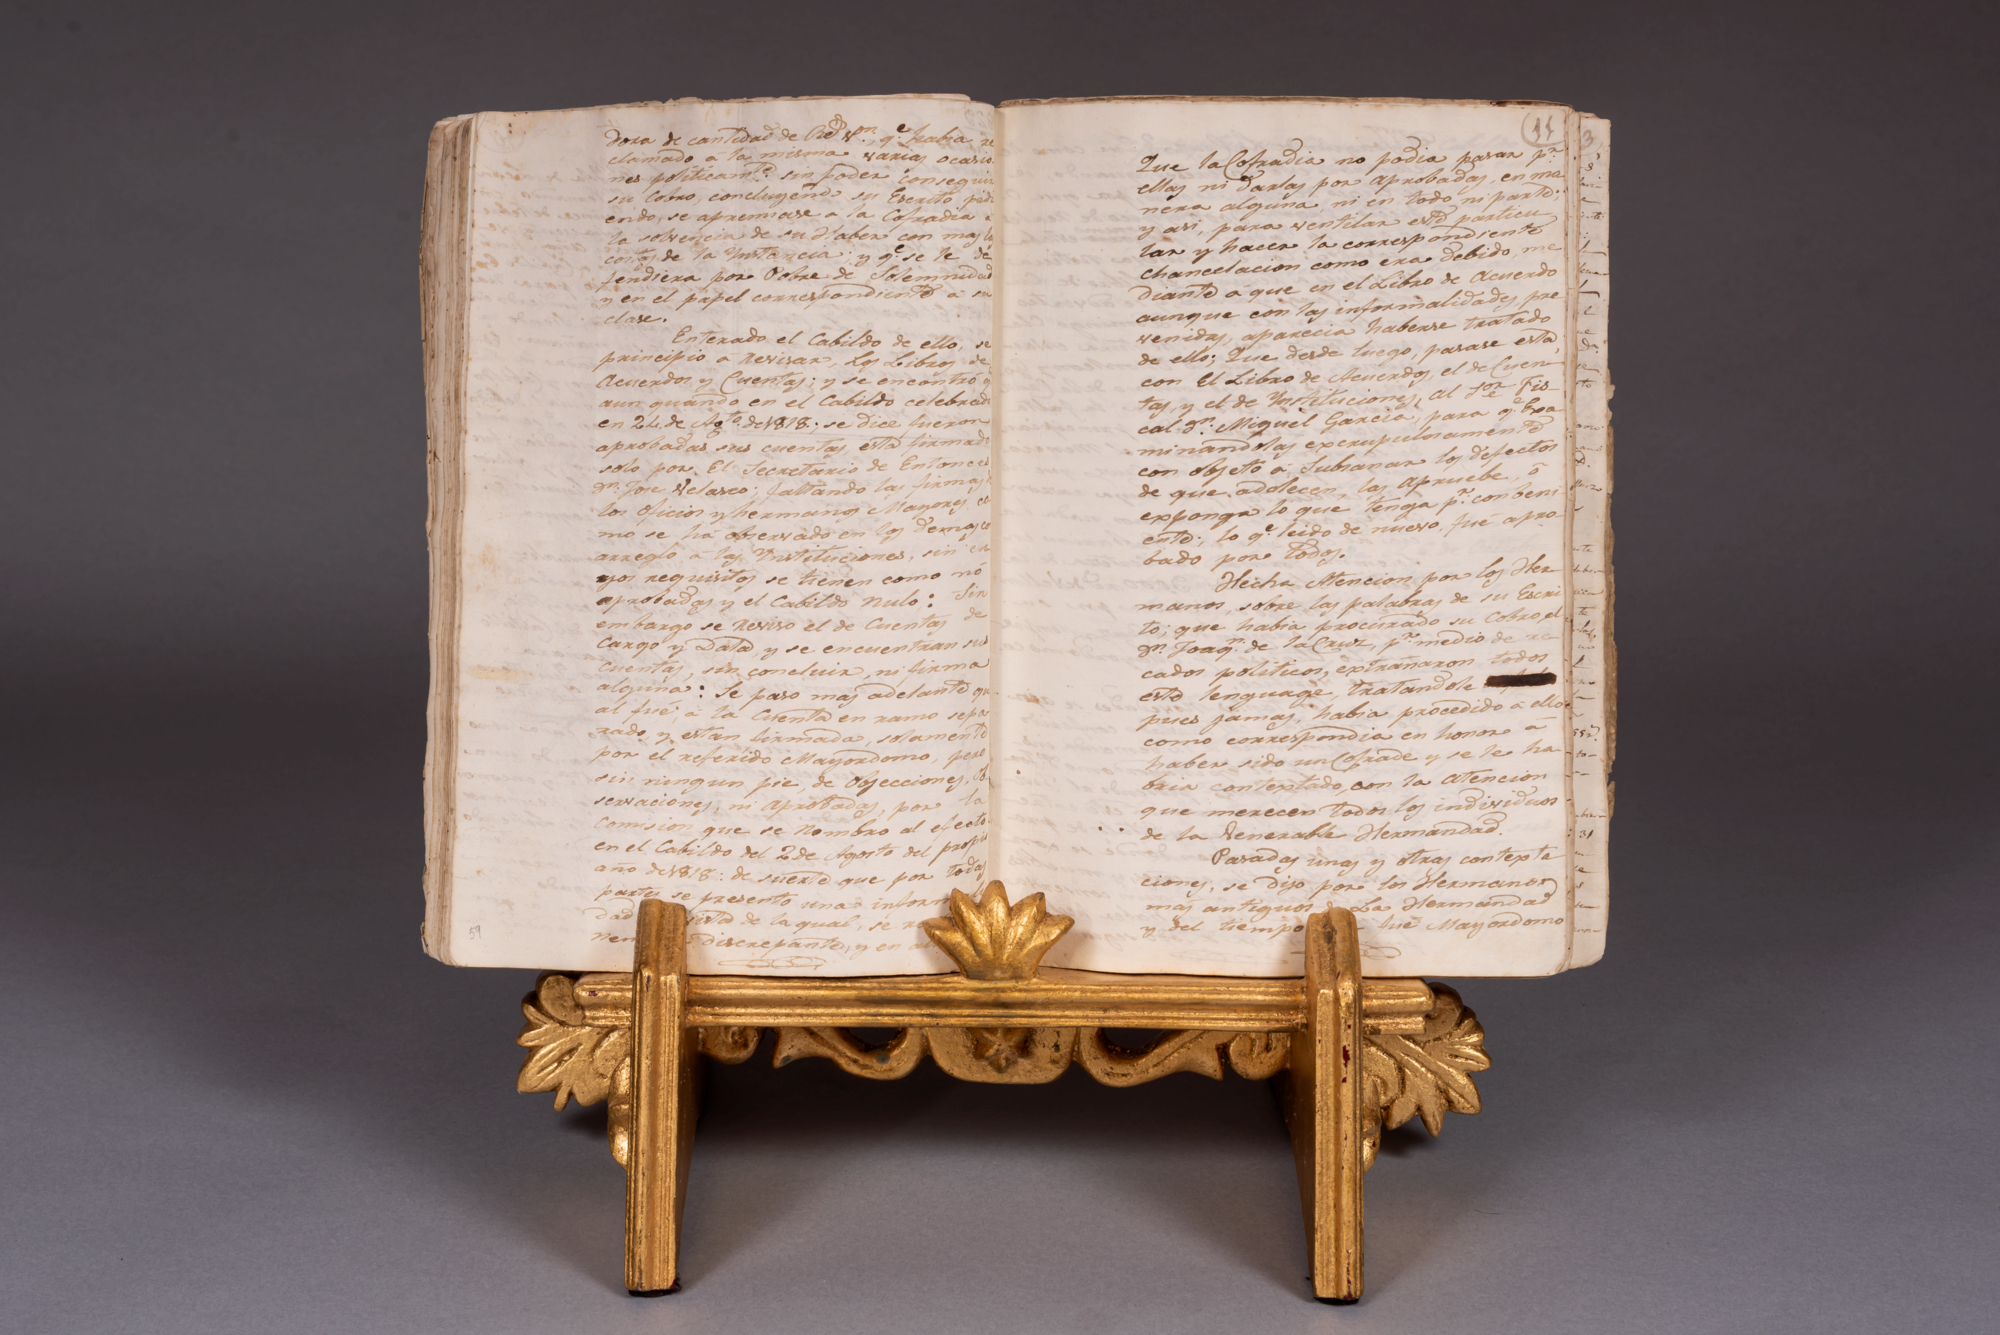 dora de cantidad de Rs. vn. qe. havia re
clamado á la misma varias ocasio
nes politicamte. sin poder conseguir
su Cobro, concluyendo su Escrito pidi
endo, se apremiase a la Cofradia á
la solvencia de su Haber con mas las
costas de la Ynstancia; y qe. se le de
fendiera por Pobre de Solemnidad
y en el papel correspondiente a su
clase.
Enterado el Cabildo de ello, se
principió a revisar, los Libros de
Acuerdos y Cuentas; y se encontró q
aun quando en el Cabildo celebrado
en 24 de Agto. de 1818: se dice fueron
aprobadas sus cuentas, está firmado
solo por El Secretario de Entonces
Dn. Jose Velasco; faltando las firmas
los oficios y hermanos Mayores, co
mo se há observado en los demas co
arreglo á las Ynstituciones, sin cu
yos requisitos se tienen como nó
aprobadas y el Cabildo nulo: Sin
embargo se reviso el de Cuentas de
Cargo y Data, y se encuentran sus
Cuentas, sin concluir, ni firma
alguna: Se paso mas adelante qu
al fué, á la Cuenta en ramo sepa
rado, y estan firmada, solamente
por el referido Mayordomo, pero
sin ningun pie, de Objecciones, Ob
servaciones, ni Aprobadas, por la
Comision que se nombro al efecto
en el Cabildo del 2 de Agosto del propio
año de 1818: de suerte que por todas
partes se presento una inform
dad de la qual, se
discrepante, y en
59
11
Que la Cofradia no podia pasar pr.
ellas ni darlas por aprobadas, en ma
nera alguna ni en todo ni parte;
y asi, para ventilar este particu
lar y hacer la correspondiente
chancelacion como era debido, me
diante á que en el Libro de Acuerdo
aunque con las informalidades pre
venidas, aparecia haberse tratado
de ello; Que desde luego, pasase esta,
con El Libro de Acuerdos, el de Cuen
tas, y el de Ynstituciones, al Sor. Fis
cal Dn. Miguel Garcia, para qe. Exa
minandolas excrupulosamente
con objeto á Subsanar los defectos
de que adolecen, las Apruebe, ó
exponga lo que tenga pr. conbeni
ente; lo qe. leido de nuevo, fué apro
bado por todos.
Hecha Atencion por los Her
manos, sobre las palabras de su Escri
to; que habia procurado su Cobro, el
Dn. Joaqn. de la Cruz, pr. medio de re
cados politicos, extrañaron todos
este lenguage, tratandole
pues jamas, habia procedido á ello
como correspondia en honor á
haber sido un Cofrade y se le ha
bria contextado, con la Atencion
que merecen todos los individuos
de la Venerable Hermandad.
Pasadas unas y otras contexta
ciones, se dijo por los Hermanos
mas antiguos de La Hermandad
y del tiempo fué Mayordomo